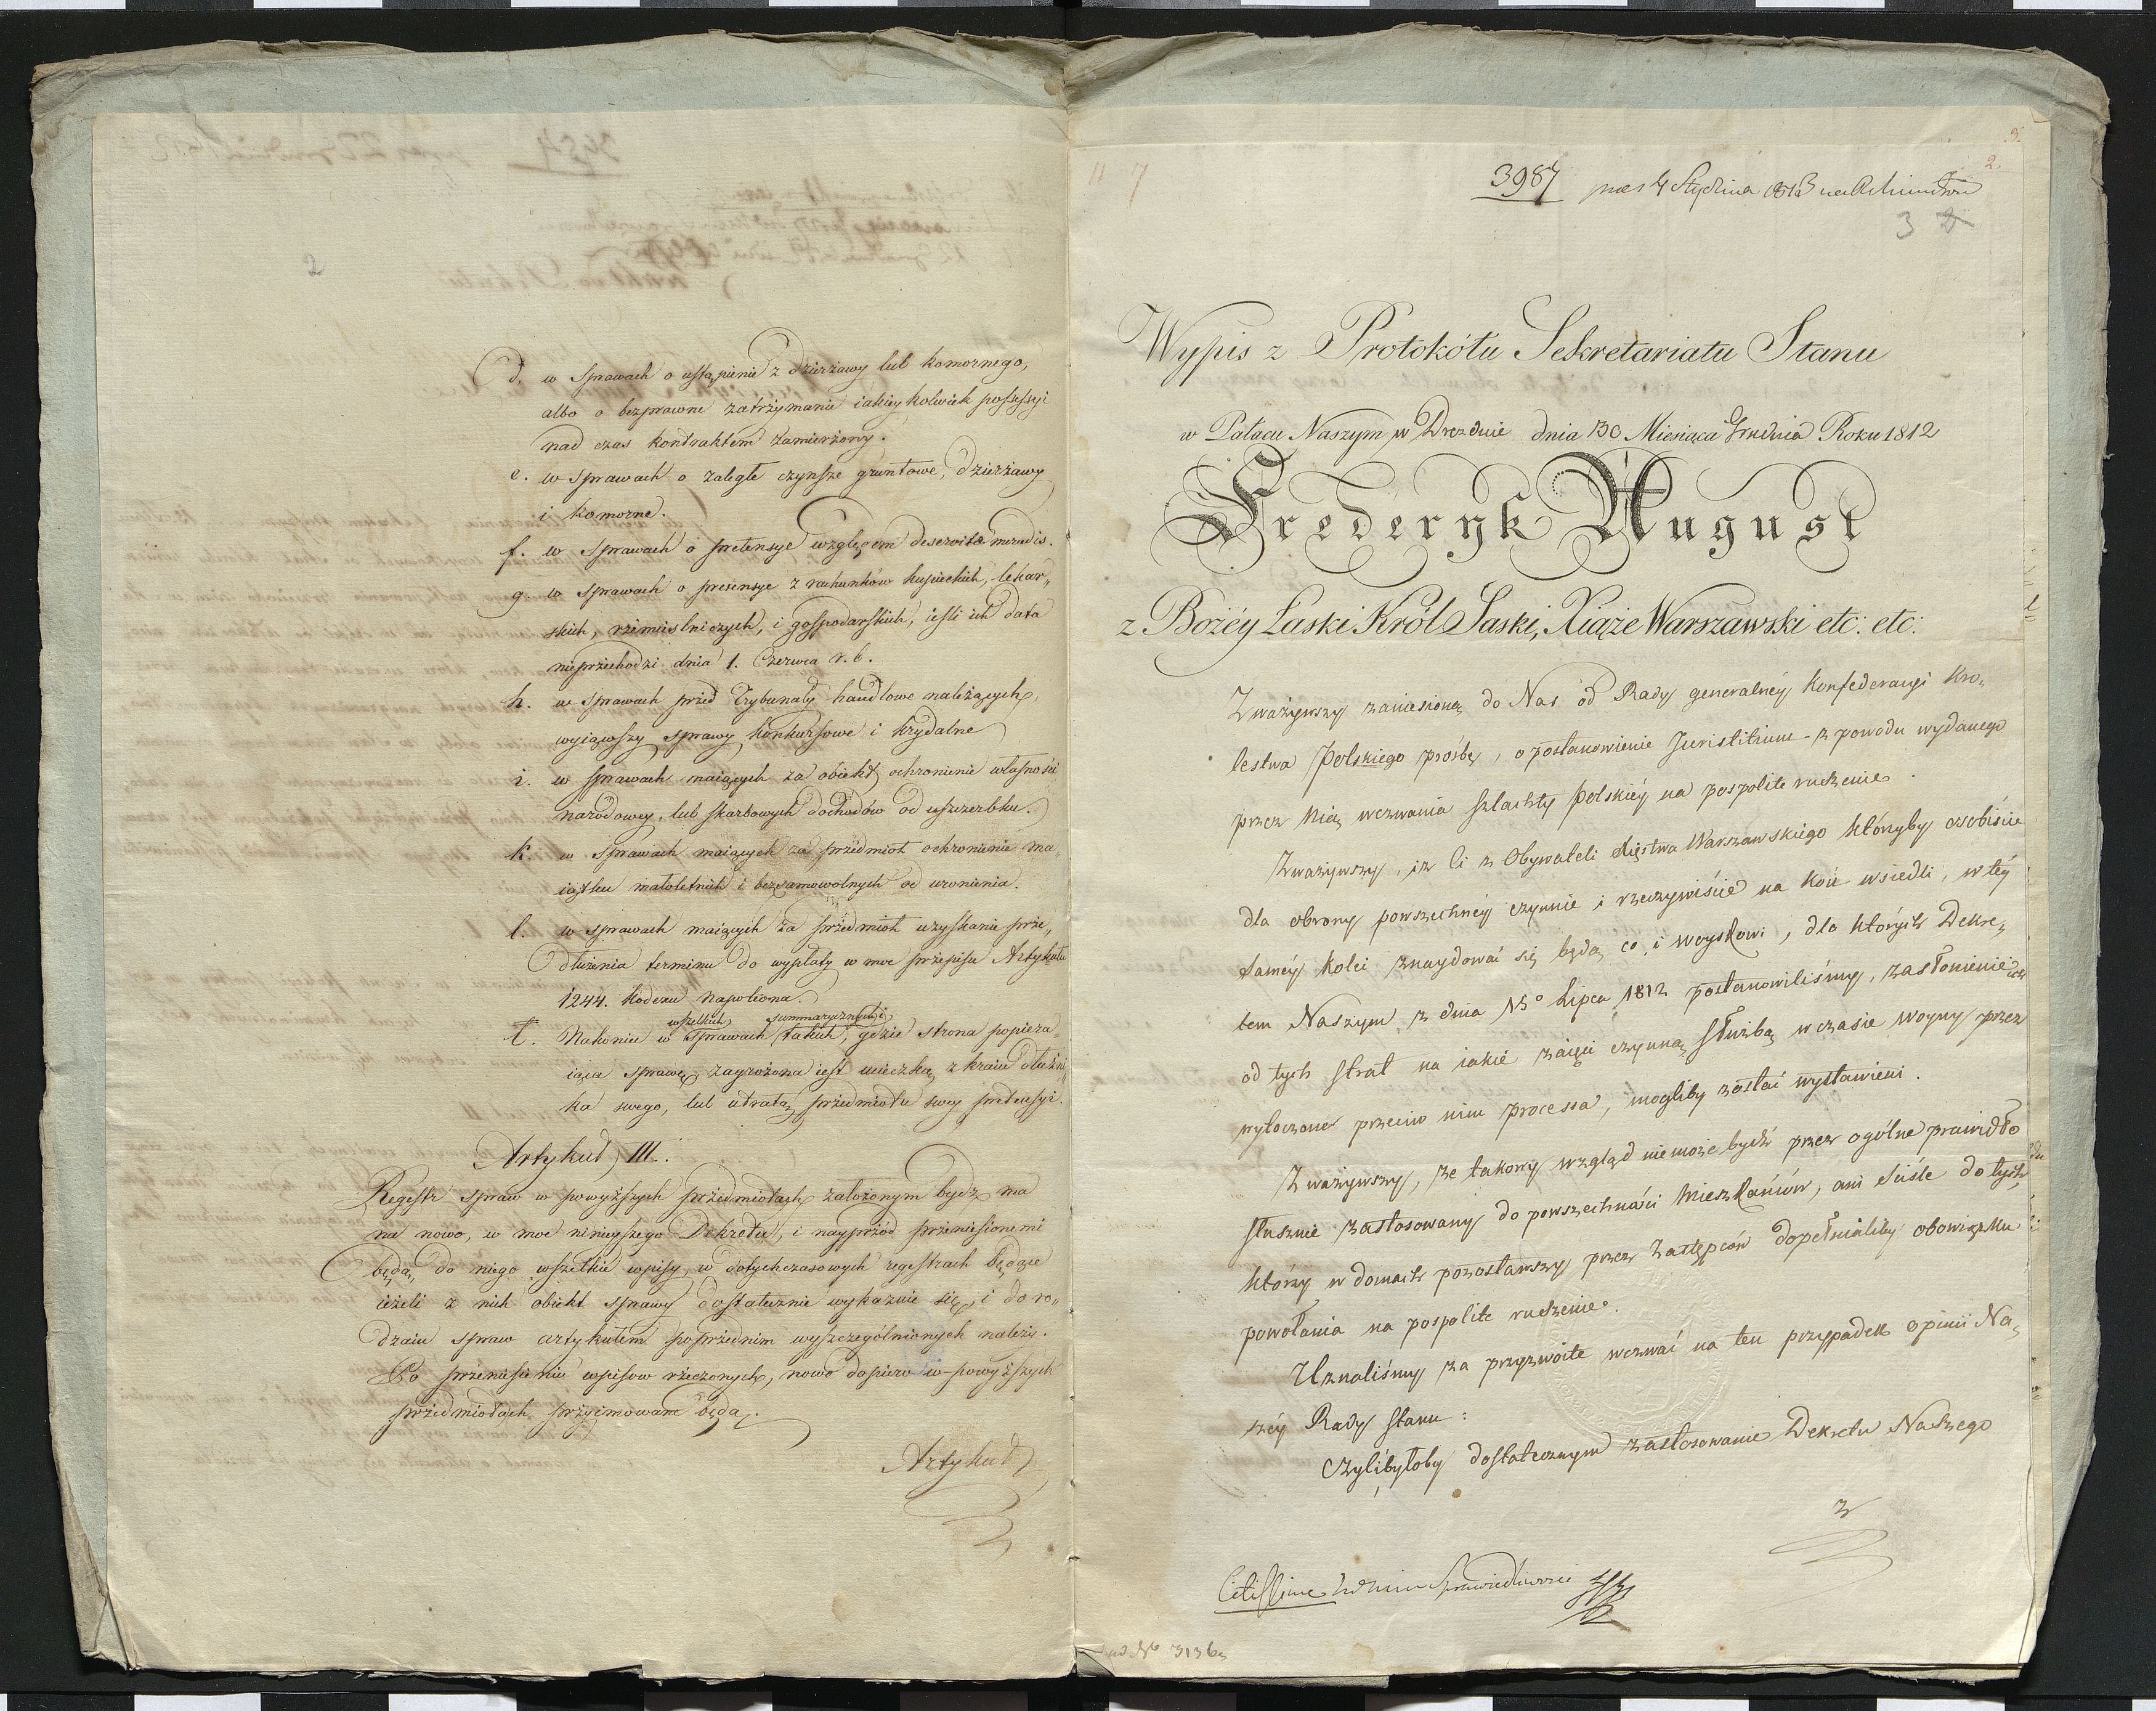 2
d. w sprawach o ustąpienie z dzierżawy lub komornego,
albo o bezprawne zatrzymanie iakieykolwiek possessyi
nad czas kontraktem zamierzony.
e. w sprawach o zaległe czynsze gruntowe, dzierżawy
i komorne.
f. w sprawach o pretensye względem deserwit
g. w sprawach o pretensye z rachunków kupieckich, lekar„
skich, rzemieslniczych, i gospodarskich, iesli ich data
nieprzechodzi dnia 1. Czerwca r. b.
h. w sprawach przed Trybunały handlowe należących,
wyiąwszy sprawy konkursowe i krydalne
i. w sprawach maiących za obiekt ochronienie własności
narodowey, lub skarbowych dochodów od uszczerbku.
k. w sprawach maiących za przedmiot ochronienie ma„
iątku małoletnich i bezsamowolnych od uronienia.
l. w sprawach maiących za przedmiot uzyskanie prze„
dłużenia terminu do wypłaty w moc przepisu Artykułu
1244. Kodexu Napoleona.
wszelkich summarycznych i
ł. Nakoniec w sprawach takich, gdzie strona popiera„
iąca sprawę zagrożona iest ucieczką z kraiu dłużni„
ka swego, lub utratą przedmiotu swey pretensyi.
Artykuł III.
Regestr spraw w powyższych przedmiotach założonym bydz ma
na nowo, w moc ninieyszego Dekretu, i nayprzód przeniesionemi
będą, do niego wszelkie wpisy, w dotychczasowych regestrach będące
ieżeli z nich obiekt sprawy dostatecznie wykazuie się, i do ro„
dzaiu spraw artykułem poprzednim wyszczególnionych należy.
Po przeniesieniu wpisow rzeczonych, nowe dopiero w powyższych
przedmiotach przyimowane będą.
Artykuł
3987 praes 4 Stycznia 1813
2.
3 2
Wypis z Protokółu Sekretariatu Stanu
w Pałacu Naszym w Dreznie dnia 30 Miesiąca Grudnia Roku 1812
Frederyk August
z Bożéy Łaski Król Saski, Xiąże Warszawski etc: etc:
Zważywszy zaniesioną do Nas od Rady generalnéy Konfederacyi Kro„
lestwa Polskiego prośbę, o postanowienie Juristitium z powodu wydanego
przez Nię wezwania szlachty Polskiéy na pospolite ruszenie.
Zważywszy, iz Ci z Obywateli Xięstwa Warszawskiego któryby osobiście
dla obrony powszechnéy czynnie i rzeczywiście na koń wsiedli, w téy
saméy kolei znaydować się będą co, i woyskowi, dla których Dekre„
tem Naszym z dnia 15o Lipca 1812 postanowiliśmy, zasłonienie ich
od tych strat na iakie zaięci czynną służbą w czasie woyny przez
wytoczone przeciw nim processa, mogliby zostać wystawieni.
Zważywszy, ze takowy wzgląd niemoze bydź przez ogólne prawidło
słusznie zastosowany do powszechności Mieszkańców, ani ściśle do tych
którzy w domach pozostawszy przez zastępców dopełnialiby obowiązku
powołania na pospolite ruszenie.
Uznaliśmy za przyzwoite wezwać na ten przypadek opinii Na„
széy Rady Stanu:
Czyliby było dostatecznym zastosowanie Dekretu Naszego
z
Citissime Sprawiedliwości
ad No 3136